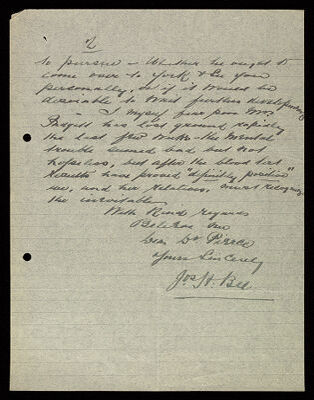 2/
to pursue – Whether he ought to
come over to York & see you
personally, or if it would be
desirable to wait further developments
– I myself fear poor Mrs
has lost ground rapidly
the last few weeks. The mental
trouble seemed bad but not
hopeless, but after the blood test
results have proved "definitely positive"
we, and her relations, must recognize
the inevitable
With Kind regards
Believe me
Dear Dr Pierce
Yours Sincerely
Jos. H. Bell